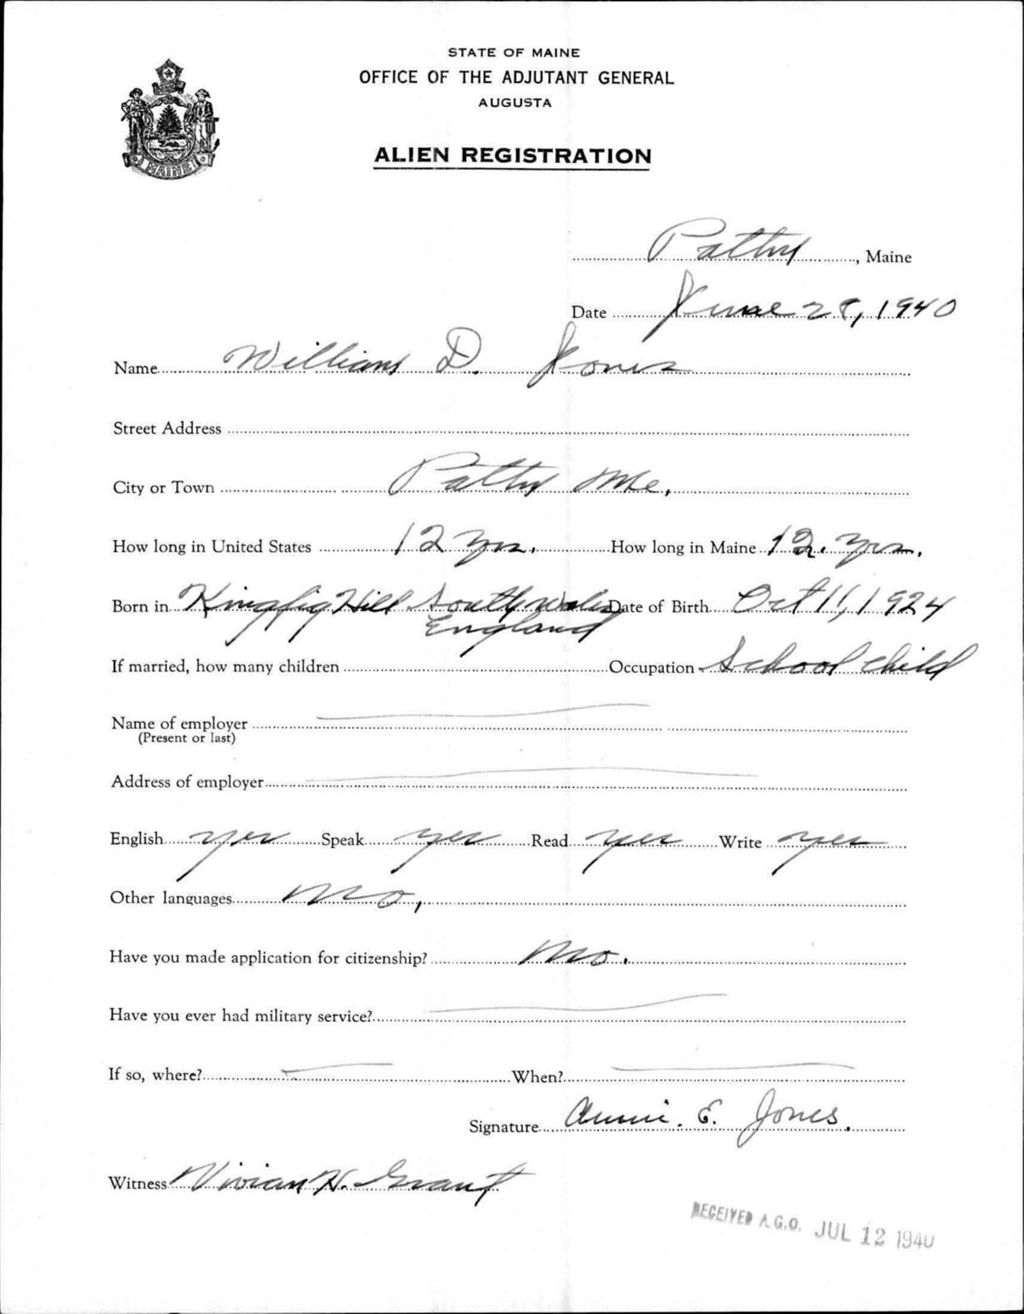 STATE OF MAINE
OFFICE OF THE ADJUTANT GENERAL
AUGUSTA
ALIEN REGISTRATION
MAINE
Patten, Maine
Date June 28, 1940
Name William D. Jones
Street Address
City or Town Patten Me.
How long in United States 12 yrs. How long in Maine 12. yrs.
Born in Hill South Wales Date of Birth Oct 11, 1924
England
If married, how many children Occupation School child
Name of employer
(Present or last)
Address of employer
English yes Speak yes Read yes Write yes
Other languages no,
Have you made application for citizenship? no.
Have you ever had military service?
If so, where? When?
Signature Annie. E. Jones.
Witness Vivian H. Grant
RECEIVED A.G.O. JUL 12 1940